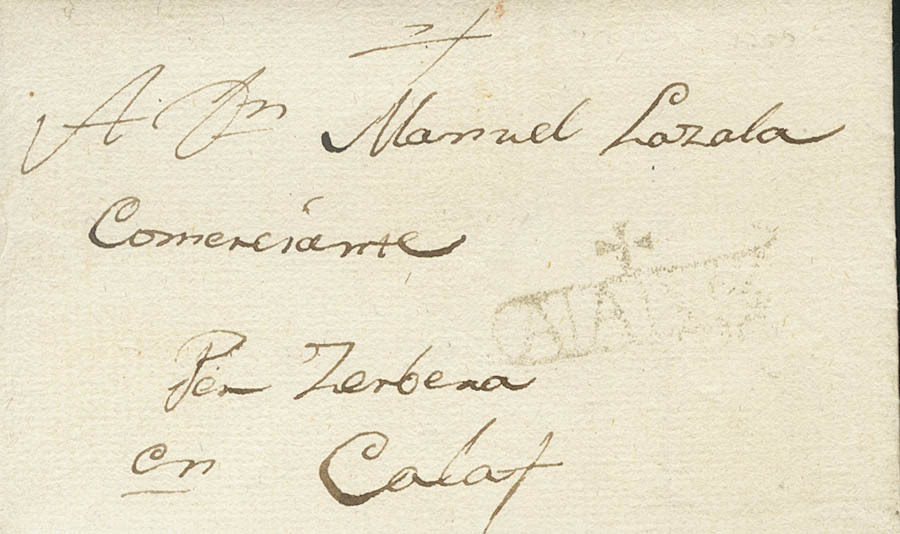 A Dn Manuel Lazala
Comerciante
Per Zerbera
en Calaf